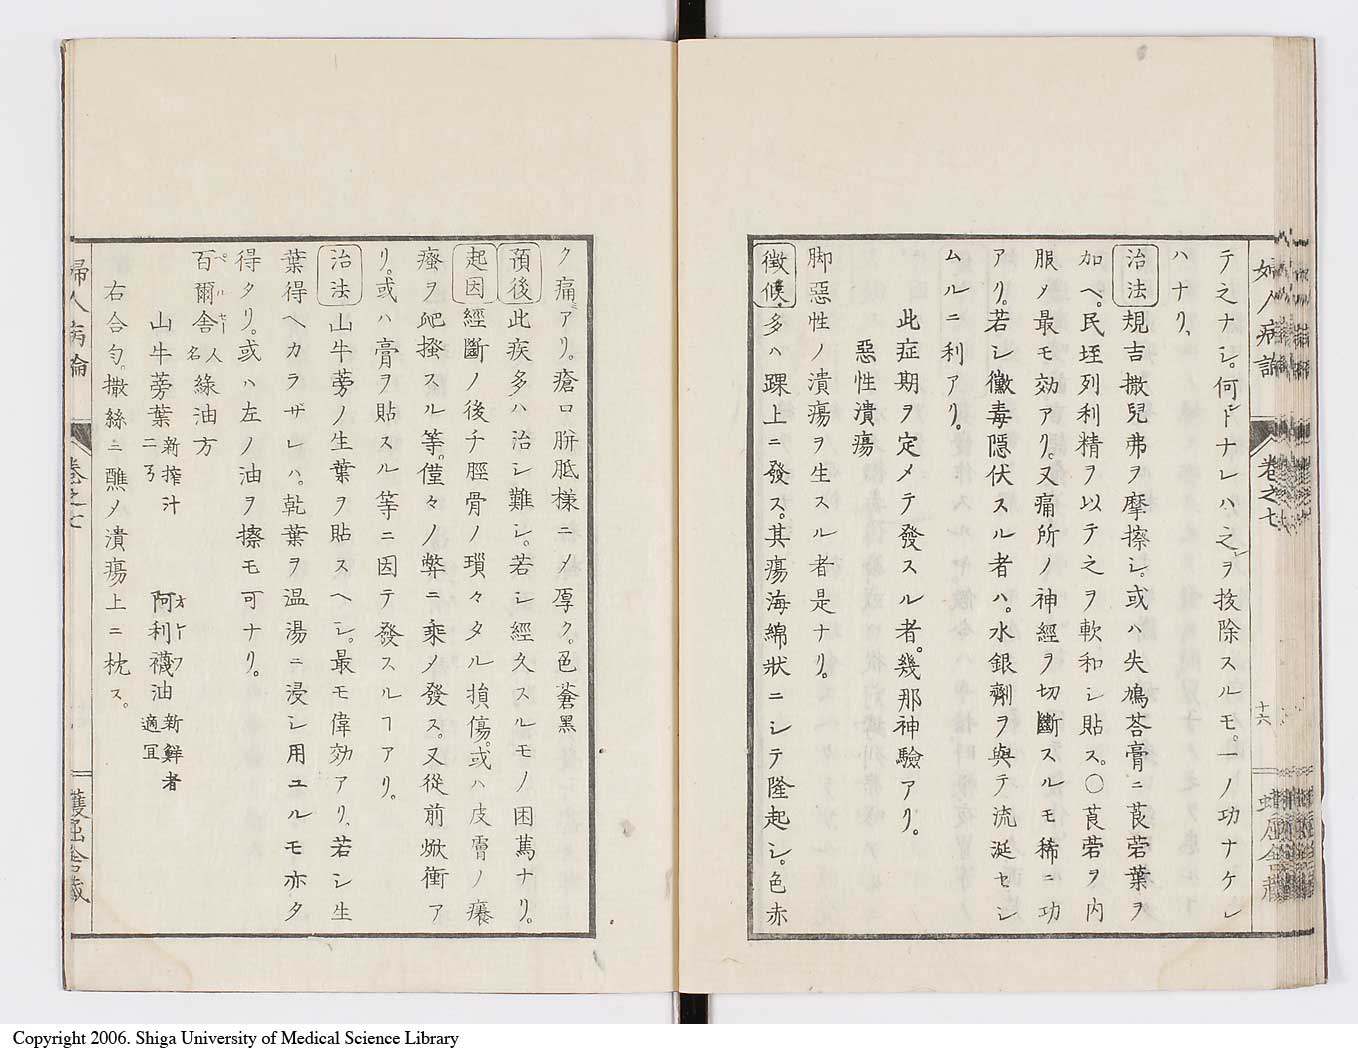 婦人病論
卷之七
十六
テ之ナシ。何トナレハ之ヲ抜除スルモ。一ノ功ナケレ
ハナリ、
治法 規吉撒兒弗ヲ摩擦シ。或ハ失鳩荅膏ニ莨菪葉ヲ
加ヘ。民埀列利精ヲ以テ之ヲ軟和シ貼ス。〇莨菪ヲ内
服ノ最モ効アリ。又痛所ノ神經ヲ切斷スルモ稀ニ功
アリ。若シ黴毒隠伏スル者ハ。水銀劑ヲ與テ流涎セシ
ムルニ利アリ。
此症期ヲ定メテ發スル者。幾那神驗アリ。
惡性潰瘍
脚惡性ノ潰瘍ヲ生スル者是ナリ。
徴候 多ハ踝上ニ發ス。其瘍海綿狀ニシテ隆起シ。色赤
ク痛アリ。瘡口胼胝樣ニメ厚ク。色蒼黑
預後 此疾多ハ治シ難シ。若シ經久スルモノ困篤ナリ。
起因 經斷ノ後チ脛骨ノ瑣々タル損傷。或ハ皮膚ノ癢
瘙ヲ爬搔スル等。僅々ノ弊ニ乗メ發ス。又從前焮衝ア
リ。或ハ膏ヲ貼スル等ニ因テ發スルヿアリ。
治法 山牛蒡ノ生葉ヲ貼スヘシ。最モ偉効アリ、若シ生
葉得ヘカラザレハ。乾葉ヲ温湯ニ浸シ用ユルモ亦タ
得タリ。或ハ左ノ油ヲ擦モ可ナリ。
百爾舎人名綠油方
山牛蒡葉新搾汁二 阿利襪油新鮮者適宜
右合匀。撒絲ニ醮メ潰瘍上ニ枕ス。
婦人病論
卷之七
蠖屈舎藏